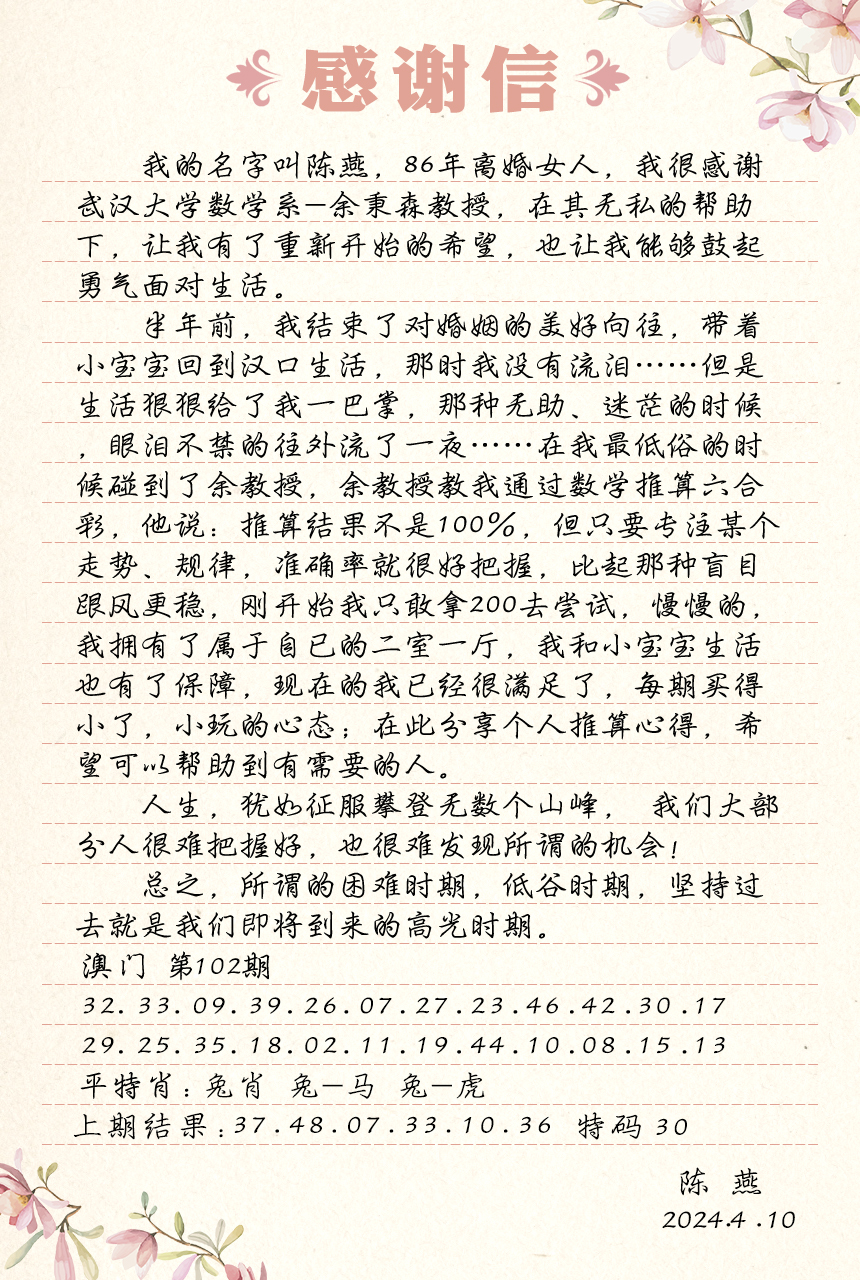 感谢信
我的名字叫陈燕，86年离婚女人，我很感谢
武汉大学数学系—余秉森教授，在其无私的帮助
下，让我有了重新开始的希望，也让我能够鼓起
勇气面对生活。
半年前，我结束了对婚姻的美好向往，带着
小宝宝回到汉口生活，那时我没有流泪……但是
生活狠狠给了我一巴掌，那种无助、迷茫的时候
，眼泪不禁的往外流了一夜……在我最低俗的时
候碰到了余教授，余教授教我通过数学推算六合
彩，他说：推算结果不是100%，但只要专注某个
走势、规律，准确率就很好把握，比起那种盲目
跟风更稳，刚开始我只敢拿200去尝试，慢慢的，
我拥有了属于自已的二室一厅，我和小宝宝生活
也有了保障，现在的我已经很满足了，每期买得
小了，小玩的心态；在此分享个人推算心得，希
望可以帮助到有需要的人。
人生，犹如征服攀登无数个山峰， 我们大部
分人很难把握好，也很难发现所谓的机会！
总之，所谓的困难时期，低谷时期，坚持过
去就是我们即将到来的高光时期。
澳门 第102期
32.33.09.39.26.07.27.23.46.42.30.17
29.25.35.18.02.11.19.44.10.08.15.13
平特肖：兔肖 兔—马 兔—虎
上期结果：37.48.07.33.10.36 特码 30
陈 燕
2024.4.10